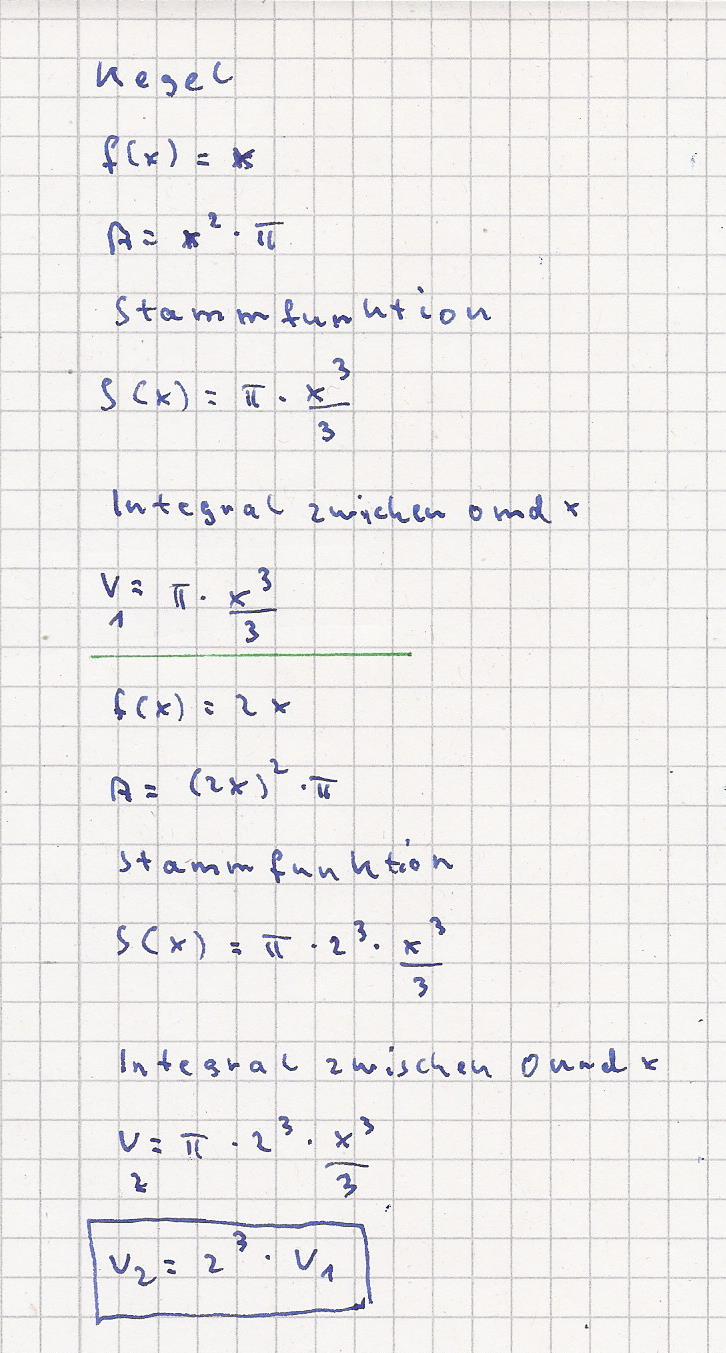 Kegel
f(x) = x
A = x² · π
Stammfunktion
S(x) = π · x³/3
Integral zwischen 0 und x
V₁ = π · x³/3
f(x) = 2x
A = (2x)² · π
Stammfunktion
S(x) = π · 2³ · x³/3
Integral zwischen 0 und x
V₂ = π · 2³ · x³/3
V₂ = 2³ · V₁